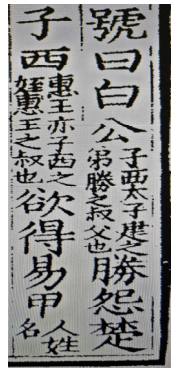 號曰白公子西太子建之弟勝之叔父也勝怨楚
子西惠王亦子西之姪惠王之叔也欲得易甲人姓名